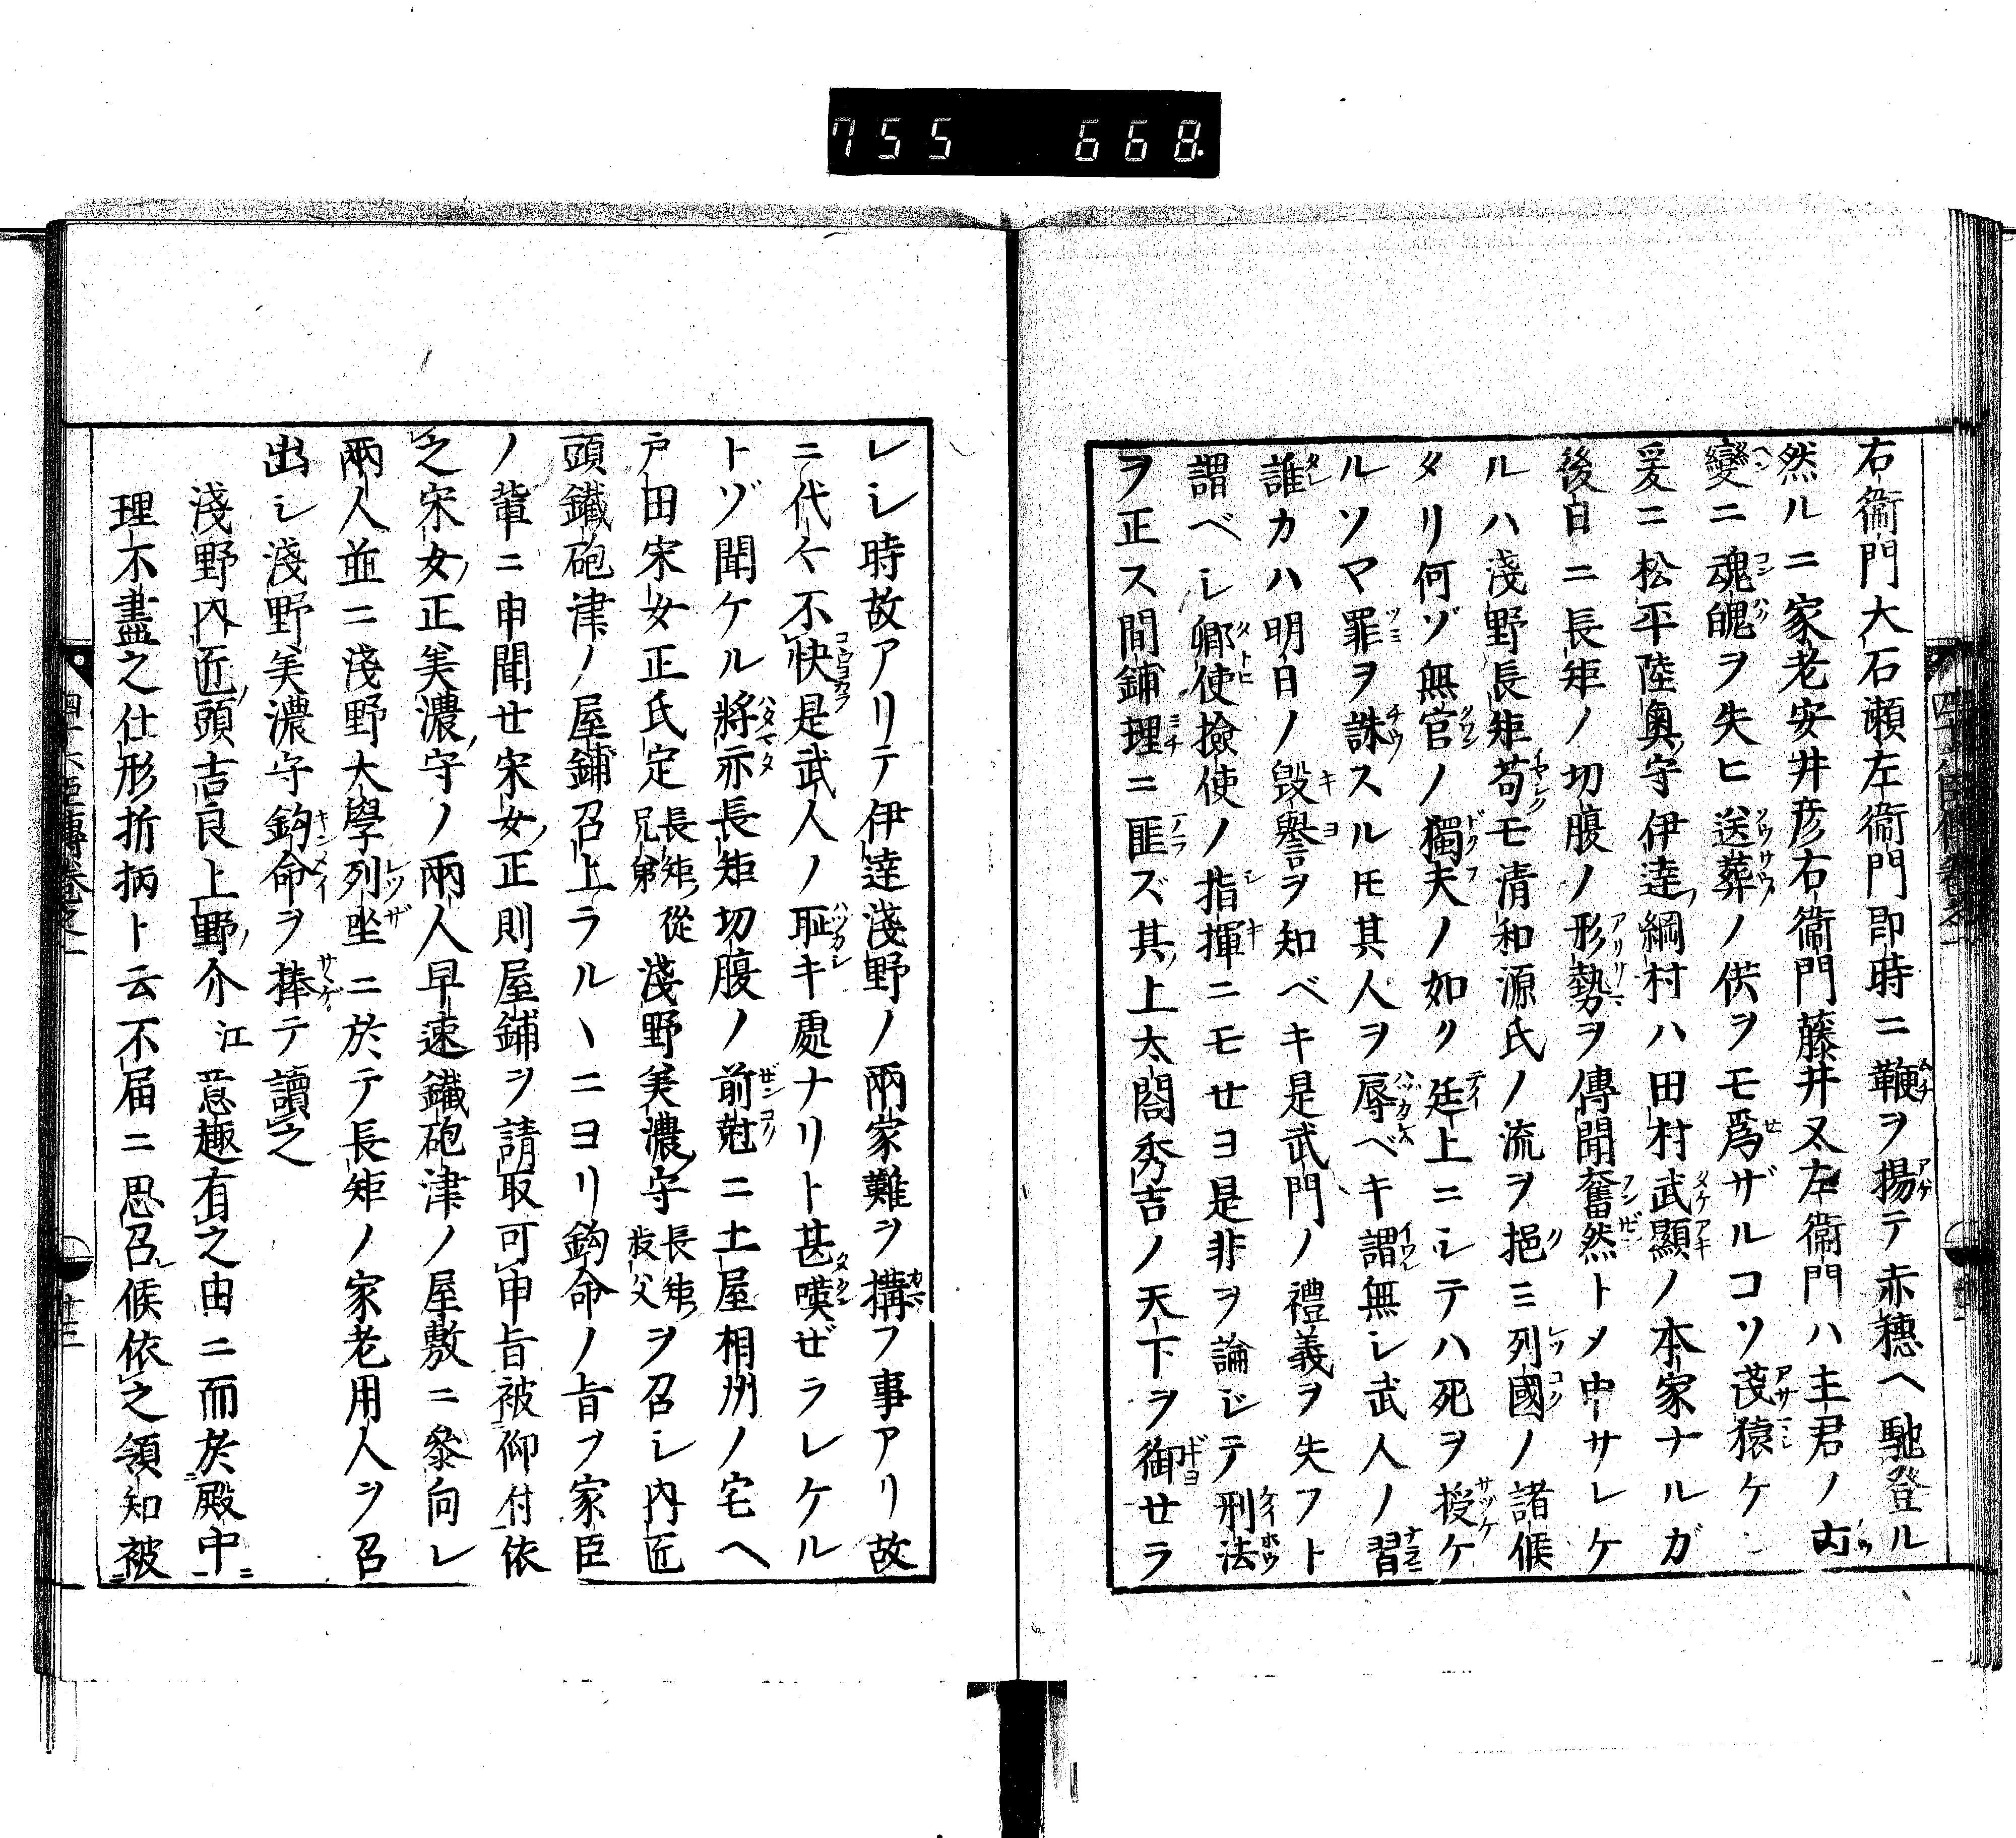 755 668
右衞門大石瀬左衞門即時ニ鞭ヲ揚テ赤穗ヘ馳登ル
然ルニ家老安井彦右衞門藤井又左衞門ハ主君ノ
變ニ魂魄ヲ失ヒ送葬ノ供ヲモ爲ザルコソ淺猿ケ
爰ニ松平陸奥守伊達綱村ハ田村武顯ノ本家ナルガ
後日ニ長矩ノ切腹ノ形勢ヲ傳聞奮然トメ申サレケ
ルハ淺野長矩苟モ清和源氏ノ流ヲ挹ミ列國ノ諸候
タリ何ゾ無官ノ獨夫ノ如ク廷上ニシテハ死ヲ授ケ
ルソマ罪ヲ誅スルモ其人ヲ辱ベキ謂無シ武人ノ習
誰カハ明日ノ毀譽ヲ知ベキ是武門ノ禮義ヲ失フト
謂ベシ卿使撿使ノ指揮ニモセヨ是非ヲ論ジテ刑法
ヲ正ス間鋪理ニ匪ズ其上太閤秀吉ノ天下ヲ御セラ
レシ時故アリテ伊達淺野ノ兩家難ヲ搆フ事アリ故
ニ代々不快是武人ノ耻キ處ナリト甚嘆ゼラレケル
トゾ聞ケル將亦長矩切腹ノ前剋ニ土屋相州ノ宅ヘ
戸田宋女正氏定長矩從兄弟淺野美濃守長矩叔父ヲ召シ内匠
頭鐵砲津ノ屋鋪召上ラルヽニヨリ鈎命ノ旨ヲ家臣
ノ輩ニ申聞せ宋女正則屋鋪ヲ請取可申旨被仰付依
之宋女正美濃守ノ兩人早速鐵砲津ノ屋敷ニ參向レ
兩人並ニ淺野大學列坐ニ於テ長矩ノ家老用人ヲ召
出シ淺野美濃守鈎命ヲ捧テ讀之
淺野内匠頭吉良上野介江意趣有之由ニ而於殿中
理不盡之仕形折柄ト云不届ニ思召候依之領知被